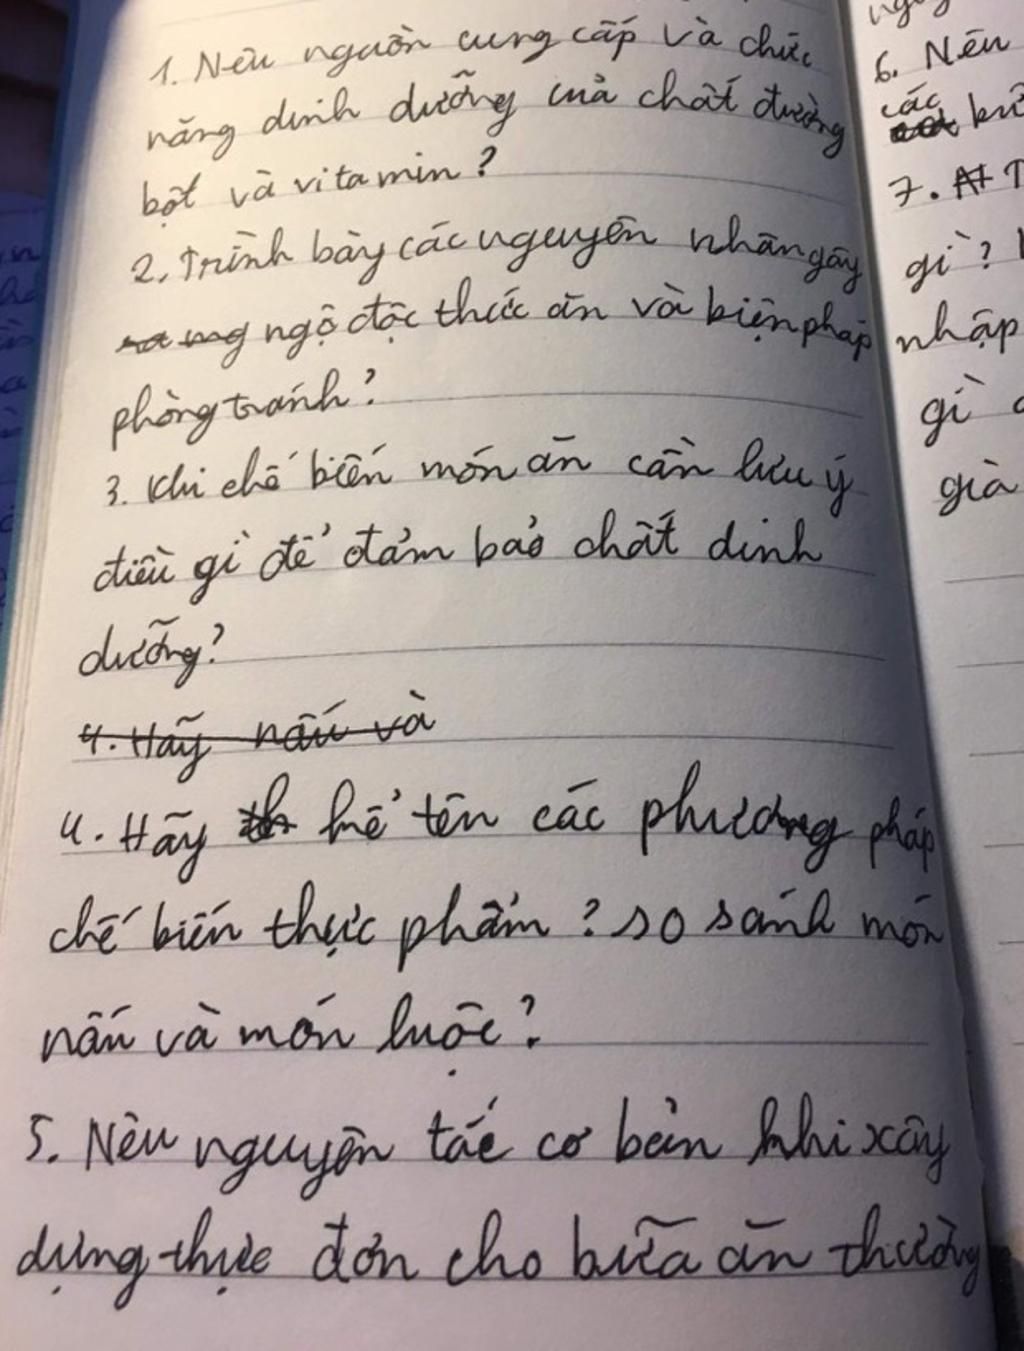 1. Nêu nguồn cung cấp và chức
năng dinh dưỡng của chất đường
bột và vitamin?
2. Trình bày các nguyên nhân gây
ngộ độc thức ăn và biện pháp
phòng tránh?
3. Khi chế biến món ăn cần lưu ý
điều gì để đảm bảo chất dinh
dưỡng?
4. Hãy nấu và
4. Hãy kể tên các phương pháp
chế biến thực phẩm? so sánh món
nấu và món luộc?
5. Nêu nguyên tắc cơ bản khi xây
dựng thực đơn cho bữa ăn thường
6. Nêu
các
7.
gì?
nhập
gì
già